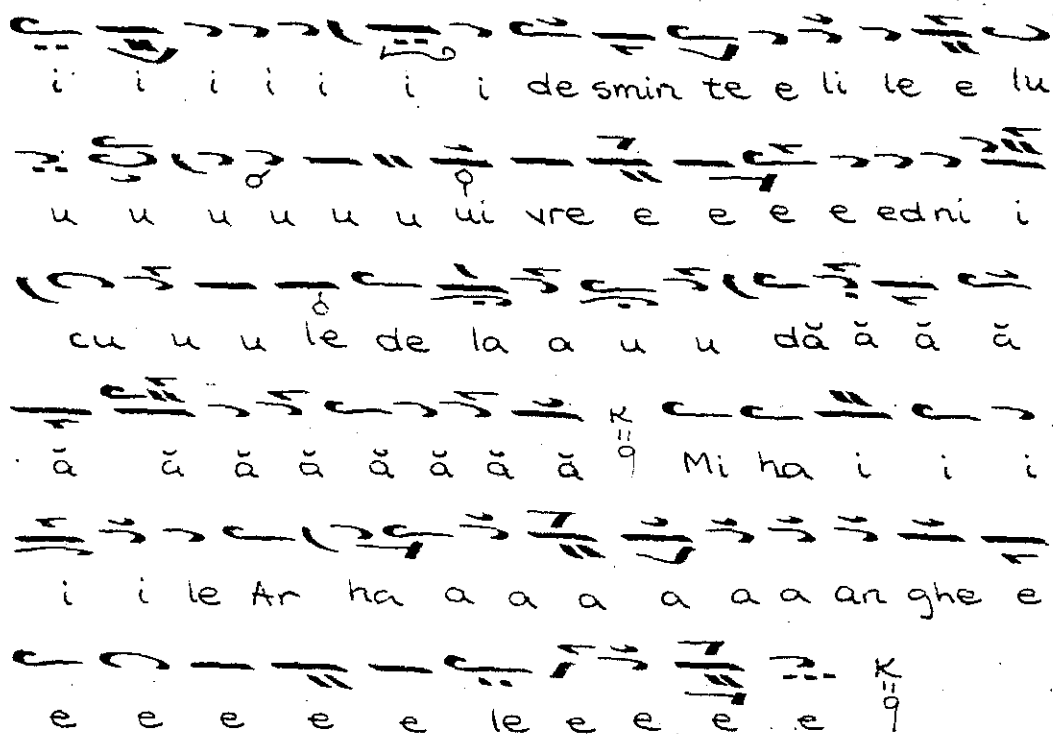 i i i i i i i de smin te e li le e lu
u u u u u u ui vre e e e e edni i
cu u u le de la a u u dă ă ă ă
ă ă ă ă ă ă ă ă Mi ha i i i
i i le Ar ha a a a a a a an ghe e
e e e e e le e e e e